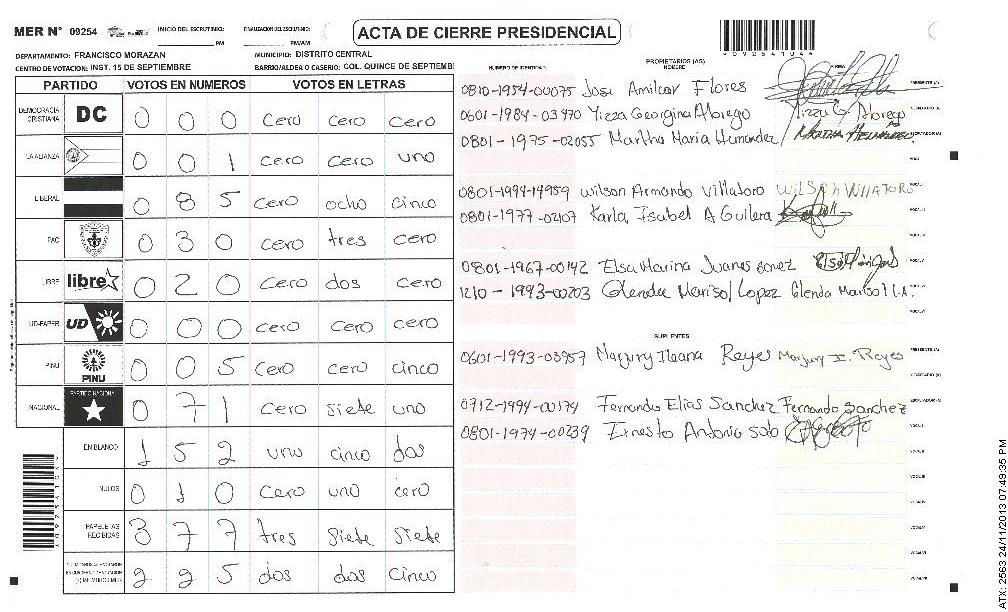 MER Nº 09254 INICIO DEL ESCRUTINIO: PM FINALIZACION DEL ESCRUTINIO: PM/AM ACTA DE CIERRE PRESIDENCIAL
DEPARTAMENTO: FRANCISCO MORAZAN MUNICIPIO: DISTRITO CENTRAL
CENTRO DE VOTACION: INST. 15 DE SEPTIEMBRE BARRIO/ALDEA O CASERIO: COL. QUINCE DE SEPTIEMB
PARTIDO VOTOS EN NUMEROS VOTOS EN LETRAS
DEMOCRACIA CRISTIANA DC 0 0 0 cero cero cero
LA ALIANZA 0 0 1 cero cero uno
LIBERAL 0 8 5 cero ocho cinco
PAC 0 3 0 cero tres cero
LIBRE libre 0 2 0 cero dos cero
UD-FAPER UD 0 0 0 cero cero cero
PINU PINU 0 0 5 cero cero cinco
NACIONAL PARTIDO NACIONAL 0 7 1 cero siete uno
EN BLANCO 1 5 2 uno cinco dos
NULOS 0 1 0 cero uno cero
PAPELETAS RECIBIDAS 3 7 7 tres siete siete
2 2 5 dos dos cinco
NUMERO DE IDENTIDAD PROPIETARIOS (AS) NOMBRE FIRMA
0810-1954-00075 Jose Amilcar Flores PRESIDENTE (A)
0601-1984-03470 Yizza Georgina Aborego Yizza G. Aborego SECRETARIO (A)
0801-1975-02055 Martha Maria Hernandez Martha Hernandez ESCRUTADOR (A)
VOCAL I
0801-1994-14959 Wilson Armando Villatoro Wilson Villatoro VOCAL II
0801-1977-02107 Karla Isabel Aguilera VOCAL III
VOCAL IV
0801-1967-00142 Elsa Marina Juanes Gomez VOCAL V
1210-1993-00203 Glenda Marisol Lopez Glenda Marisol L.A. VOCAL VI
SUPLENTES
0601-1993-03957 Marjury Ileana Reyes Marjury I. Reyes PRESIDENTE (A)
SECRETARIO (A)
0712-1994-00174 Fernando Elias Sanchez Fernando Sanchez ESCRUTADOR (A)
0801-1974-00239 Ernesto Antonio Soto VOCAL I
VOCAL II
VOCAL III
VOCAL IV
VOCAL V
VOCAL VI
VOCAL VII
ATX: 2563 24/11/2013 07:49:35 PM